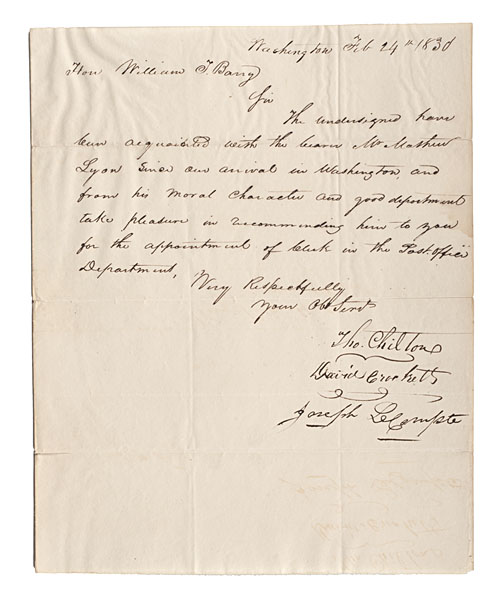 Washington Feb 24th 1830
Hon William T. Barry
Sir
The undersigned have
been acquainted with the bearer Mr Mathew
Lyon since our arrival in Washington, and
from his moral character and good deportment
take pleasure in recommending him to you
for the appointment of Clerk in the Post. office
Department,
Very Respectfully
Your Obt Servts
Tho. Chilton
David Crockett
Joseph LeCompte